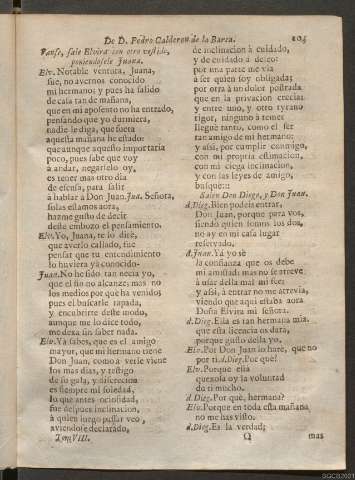 De D. Pedro Calderon de la Barca.
Vanse, sale Elvira con otro vestido,
poniendosele Juana.
Elv. Notable ventura, Juana,
fue, no avernos conocido
mi hermano; y pues ha salido
de casa tan de mañana,
que en mi aposento no ha entrado,
pensando que yo durmiera,
nadie le diga, que fuera
aquesta mañana he estado:
que aunque aquesto importaria
poco, pues sabe que voy
a andar, negarselo oy,
es tener mas otro dia
de escusa, para salir
à hablar à Don Juan. Jua. Señora,
solas estamos aora,
hazme gusto de decir
deste embozo el pensamiento.
Elv. Yo, Juana, te lo diré,
que averlo callado, fue
pensar que tu entendimiento
lo huviera yà conocido.
Juan. No he sido tan necia yo,
que el fin no alcanze, mas no
los medios por què ha venido;
pues el buscarle tapada,
y encubrirte deste modo,
aunque me lo dice todo,
me dexa sin saber nada.
Elv. Yà sabes, que es el amigo
mayor, que mi hermano tiene
Don Juan, como à verle viene
los mas dias, y testigo
de su gala, y discrecion
es siempre mi soledad,
lo que antes ociosidad,
fue despues inclinacion,
à quien luego passar veo,
aviendose declarado,
Tom. VIII.
de inclinacion à cuidado,
y de cuidado à deseo:
por una parte me via
à ser quien soy obligada;
por otra à un dolor postrada
que en la privacion crecia;
y entre uno, y otro tyrano
rigor, ninguno à temer
lleguè tanto, como el ser
tan amigo de mi hermano:
y assi, por cumplir conmigo,
con mi propria estimacion,
con mi ciega inclinacion,
y con las leyes de amigo,
busquè:::
Salen Don Diego, y Don Juan.
d. Dieg. Bien podeis entrar,
Don Juan, porque para vos,
siendo quien somos los dos,
no ay en mi casa lugar
reservado.
d. Juan. Yà yo sè
la confianza que os debe
mi amistad; mas no se atreve
à usar della mal mi fee;
y assi, à entrar no me atrevia,
viendo que aqui estaba aora
Doña Elvira mi señora.
d. Dieg. Ella es tan hermana mia,
que esta licencia os darà,
porque gusto della yo.
Elv. Por Don Juan lo harè, que no
por ti. d. Dieg. Por què?
Elv. Porque està
quexosa oy la voluntad
de ti mucho.
d. Dieg. Por què, hermana?
Elv. Porque en toda esta mañana,
no me has visto.
d. Dieg. Es la verdad;
Q
mas